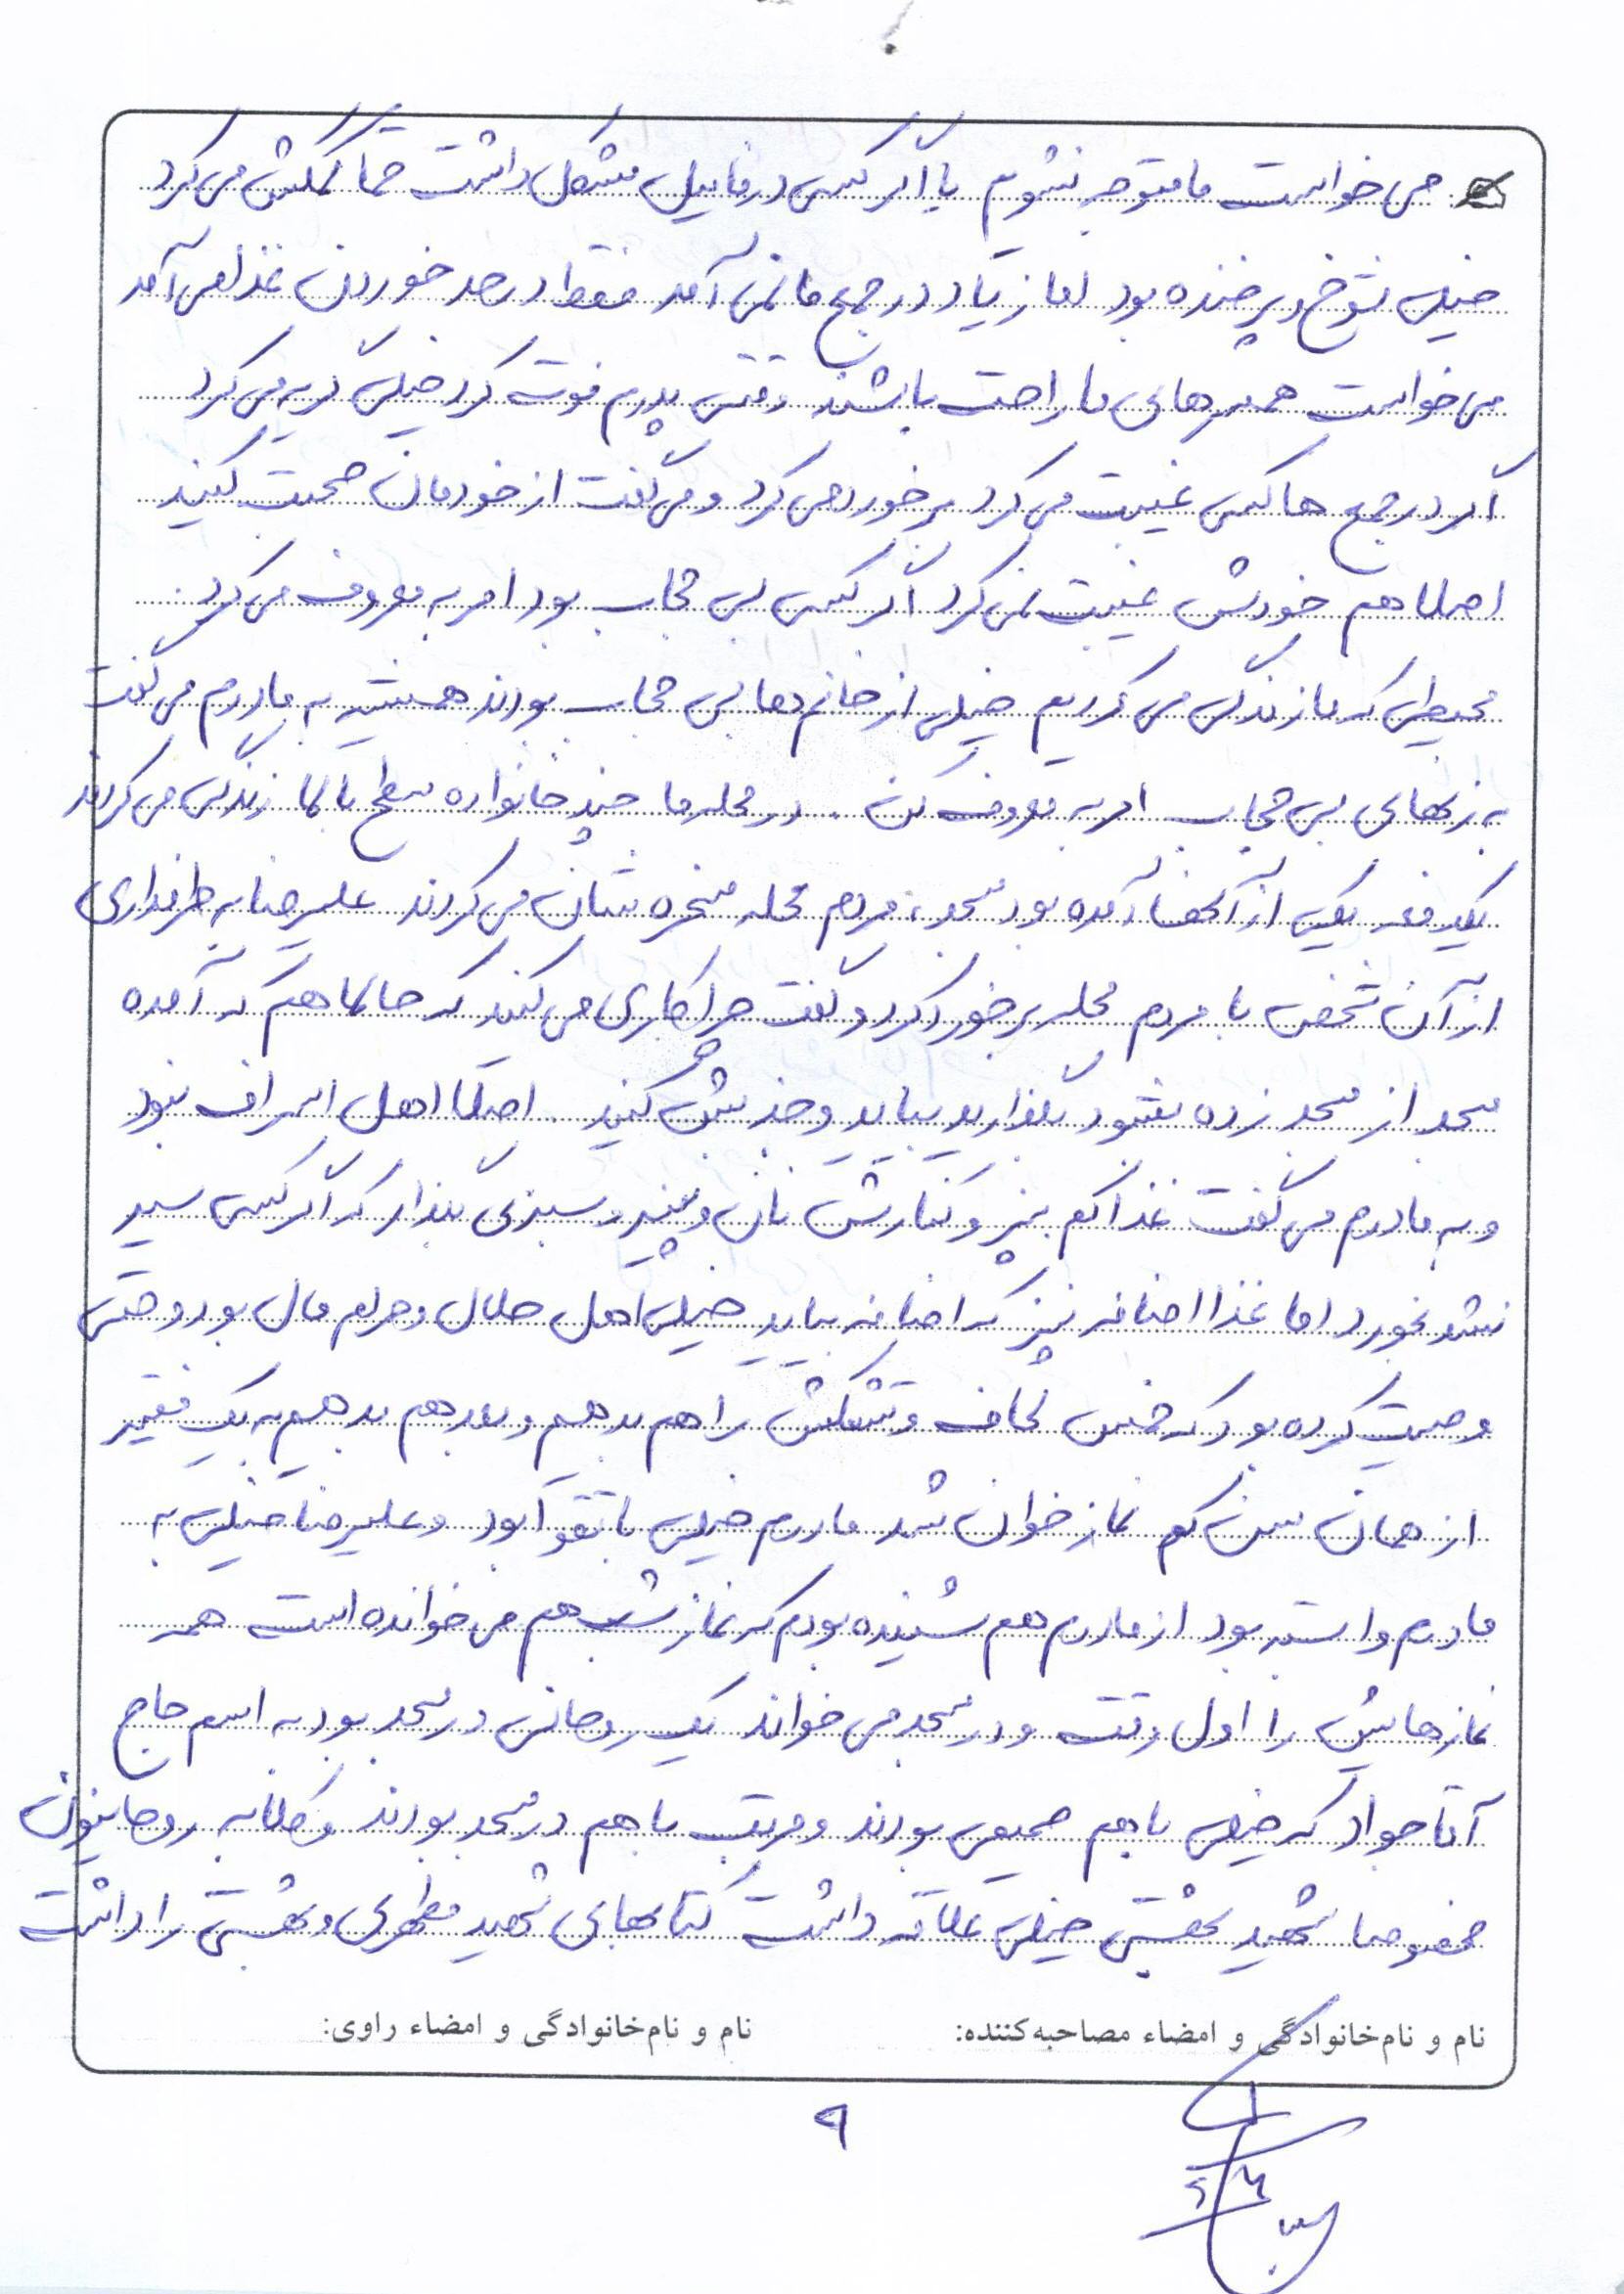 می‌خواست ما متوجه نشویم یا اگر کسی در فامیل مشکل داشت حتما کمکش می‌کرد
خیلی شوخ و پرخنده بود اما زیاد در جمع ما نمی‌آمد فقط در حد خوردن غذا می‌آمد
می‌خواست همسرهای ما راحت باشند وقتی پدرم فوت کرد خیلی گریه می‌کرد
اگر در جمع ها کسی غیبت می‌کرد برخورد می‌کرد و می‌گفت از خودمان صحبت کنید
اصلا هم خودش غیبت نمی‌کرد اگر کسی بی حجاب بود امر به معروف می‌کرد.
محیطی که ما زندگی می‌کردیم خیلی از خانم‌ها بی حجاب بودند همیشه به مادرم می‌گفت
به زنهای بی حجاب امر به معروف کن. در محله ما چند خانواده سطح بالا زندگی می‌کردند
یکدفعه یکی از آنها آمده بود مسجد، مردم محله مسخره شان می‌کردند علیرضا به طرفداری
از آن شخص با مردم محله برخورد کرد و گفت چرا کاری می‌کنید که حالا هم که آمده
مسجد از مسجد زده بشود بگذارید بیاید و جذبش کنید. اصلا اهل اسراف نبود
و به مادرم می‌گفت غذا کم بپز و کنارش نان و پنیر و سبزی بگذار که اگر کسی سیر
نشد بخورد اما غذا اضافه نپز که اضافه بیاید خیلی اهل حلال و حرام مال بود و حتی
وصیت کرده بود که خمس لحاف و تشکش را هم بدهیم و بعد هم بدهیم به یک فقیر
از همان سن کم نماز خوان شد مادرم خیلی با تقوا بود و علیرضا خیلی به
مادرم وابسته بود از مادرم هم شنیده بودم که نماز شب هم می‌خوانده است همه
نمازهایش را اول وقت و در مسجد می‌خواند یک روحانی در مسجد بود به اسم حاج
آقا جواد که خیلی با هم صمیمی بودند و مرتب با هم در مسجد بودند و کلا به روحانیون
مخصوصا شهید بهشتی خیلی علاقه داشت کتابهای شهید مطهری و بهشتی را داشت
نام و نام‌خانوادگی و امضاء مصاحبه‌کننده: نام و نام‌خانوادگی و امضاء راوی:
۹